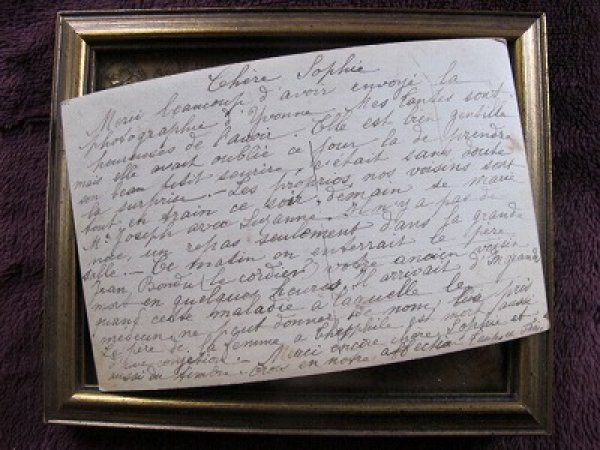 Chère Sophie
Merci beaucoup d'avoir envoyé la
photographie d'Yvonne. Mes tantes sont
heureuses de l'avoir. Elle est bien gentille
mais elle avait oublié ce jour là de prendre
son beau petit sourire c'était sans doute
la surprise. — Les proprios, nos voisins sont
tout en train ce soir, demain se marie
Mr Joseph avec Suzanne. Il n'y a pas de
noce, un repas seulement dans la grande
salle. — Ce matin on enterrait le père
Jean le cordier votre ancien voisin
mort en quelques heures, il arrivait d'
cette maladie à laquelle le
médecin ne peut donner de nom,
Le père de la femme à Théophile est mort aussi
d'une congestion. — Merci encore chère Sophie et
aussi du timbre. Crois en notre affection